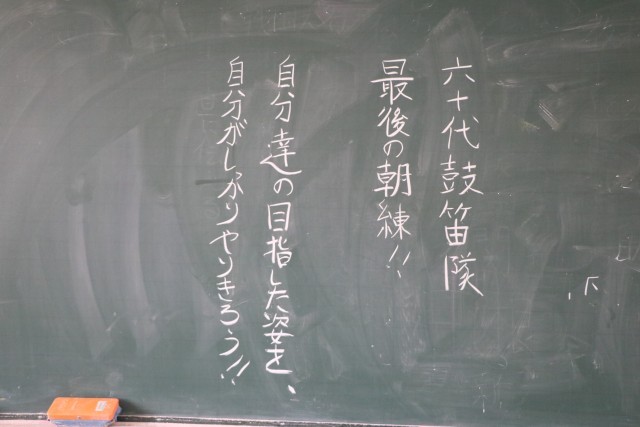 六十代鼓笛隊
最後の朝練!!
自分達の目指した姿を、
自分がしっかりやりきろう!!